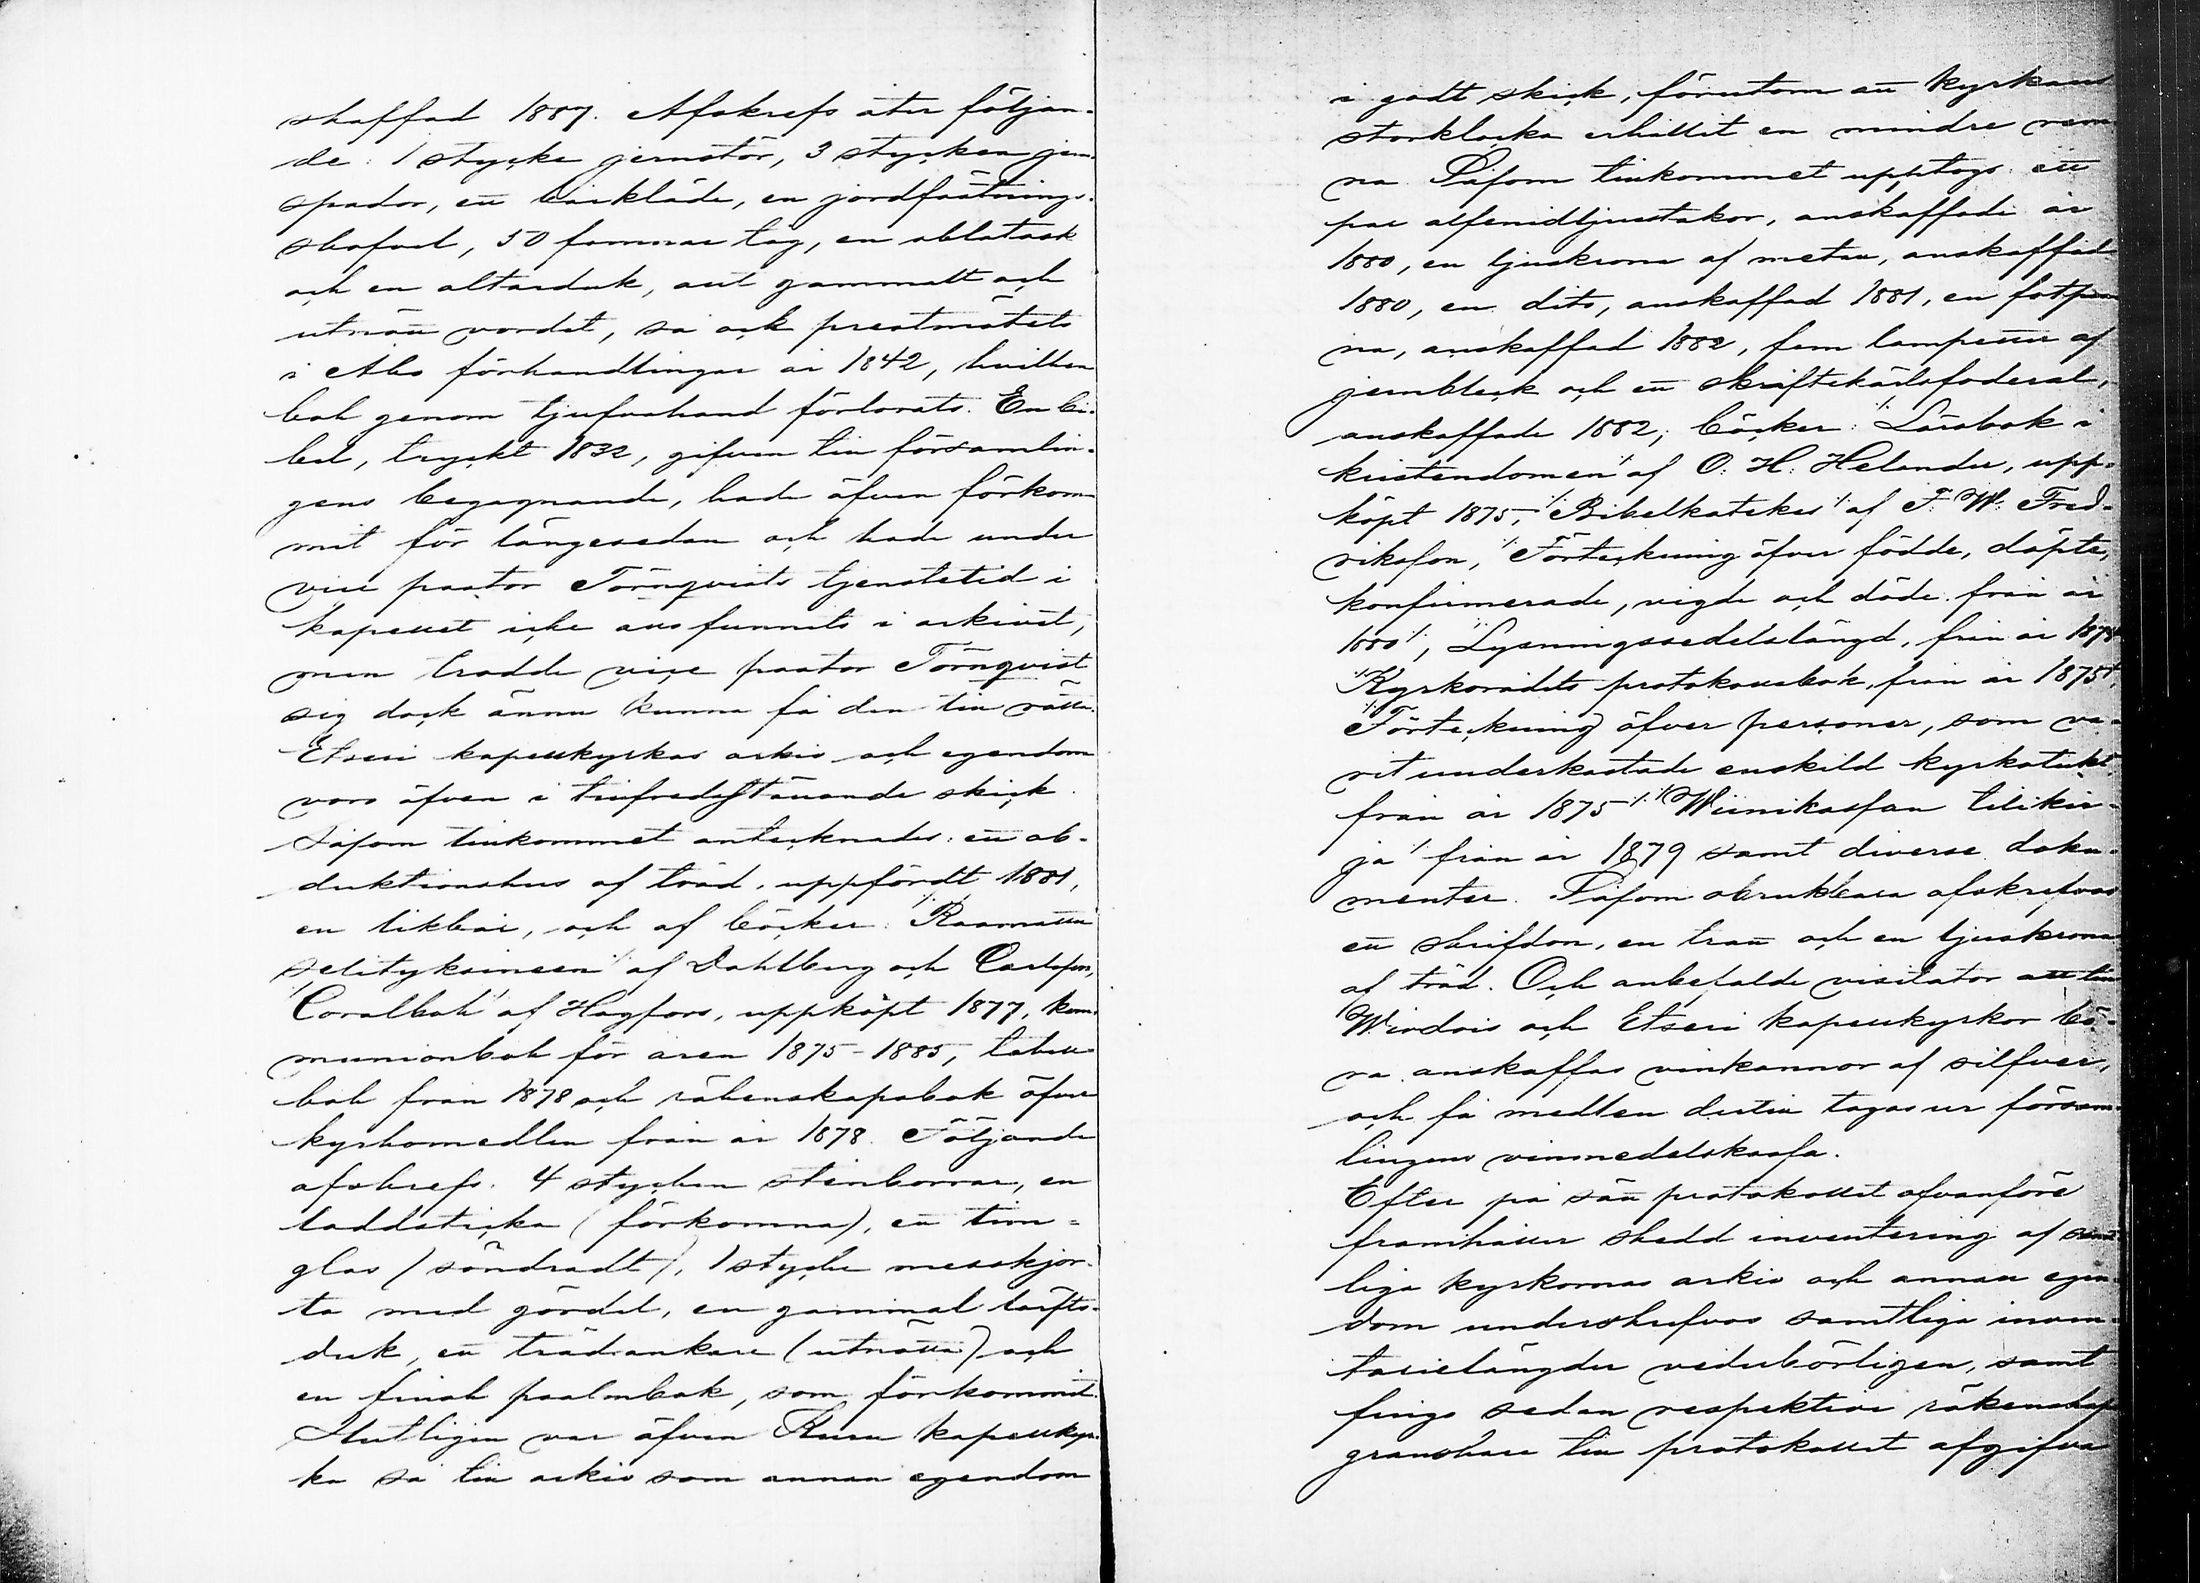 skaffad 1887. Afskrefs åter följan-
de: 1 stycke jernstör, 3 stycken jern-
spador, ett bårkläde, en jordfästnings-
skofvel, 50 famnar tåg, en oblatask
och en altarduk, allt gammalt och
utnött vordet, så ock prestmötets
i Åbo förhandlingar år 1842, hvilken
bok genom tjufvahand förlorats. En bi-
bel, tryckt 1832, gifven till församlin-
gens begagnande, hade äfven förkom-
mit för längesedan och hade under
vice pastor Törnqvists tjenstetid i
kapellet icke alls funnits i arkivet,
men trodde vice pastor Törnqvist
sig dock ännu kunna få den till rätta.
Etseri kapellkyrkas arkiv och egendom
voro äfven i tillfredsställande skick.
Såsom tillkommet antecknades: ett ob-
duktionshus af träd, uppfördt 1881,
en likbår, och af böcker: "Raamatun
selityksineen" af Dahlberg och Carlsson,
"Coralbok" af Hagfors, uppköpt 1877, kom-
munionbok för åren 1875-1885, tabell-
bok från 1878 och räkenskapsbok öfver
kyrkomedlen från år 1878. Följande
afskrefs: 4 stycken stenborrar, en
laddsticka (förkomna), ett tim=
glas (söndradt), 1 stycke messkjor-
ta med gördel, en gammal lärfts-
duk, ett trädankare (utnötta) och
en finsk psalmbok, som förkommit.
Slutligen var äfven Keuru kapellkyr-
ka så till arkiv som annan egendom
i godt skick, förutom att kyrkans
storklocka erhållit en mindre rem-
na. Såsom tillkommet upptogs: ett
par alfenidljusstakar, anskaffade år
1880, en ljuskrona af metall, anskaffad
1880, en dito, anskaffad 1881, en
na, anskaffad 1882, fem lampetter af
jernbleck och ett skriftekärlsfoderal,
anskaffade 1882; böcker: "Lärobok i
kristendomen" af O. H. Helander, upp-
köpt 1875, "Bibelkatekes" af F. W. Fred-
riksson, "Förteckning öfver födde, döpte,
konfirmerade, vigde och döde från år
1880", "Lysningssedelslängd, från år 1878
"Kyrkorådets protokollsbok, från år 1875",
"Förteckning öfver personer, som va-
rit underkastade enskild kyrkotukt,
från år 1875" "Wiinikassan tilikir-
ja" från år 1879 samt diverse doku-
menter. Såsom obrukbara afskrefvos
ett skrifdon, en tratt och en ljuskrona
af träd. Och anbefalde visitator att till
Wirdois och Etseri kapellkyrkor bö-
ra anskaffas vinkannor af silfver,
och få medlen dertill tagas ur försam-
lingens vinmedelskassa.
Efter på sätt protokollet ofvanföre
framhåller skedd inventering af sam-
liga kyrkornas arkiv och annan egen-
dom underskrefvos samtliga inven-
tarielängder vederbörligen, samt
fingo sedan respektive räkenskaps
granskare till protokollet afgifva